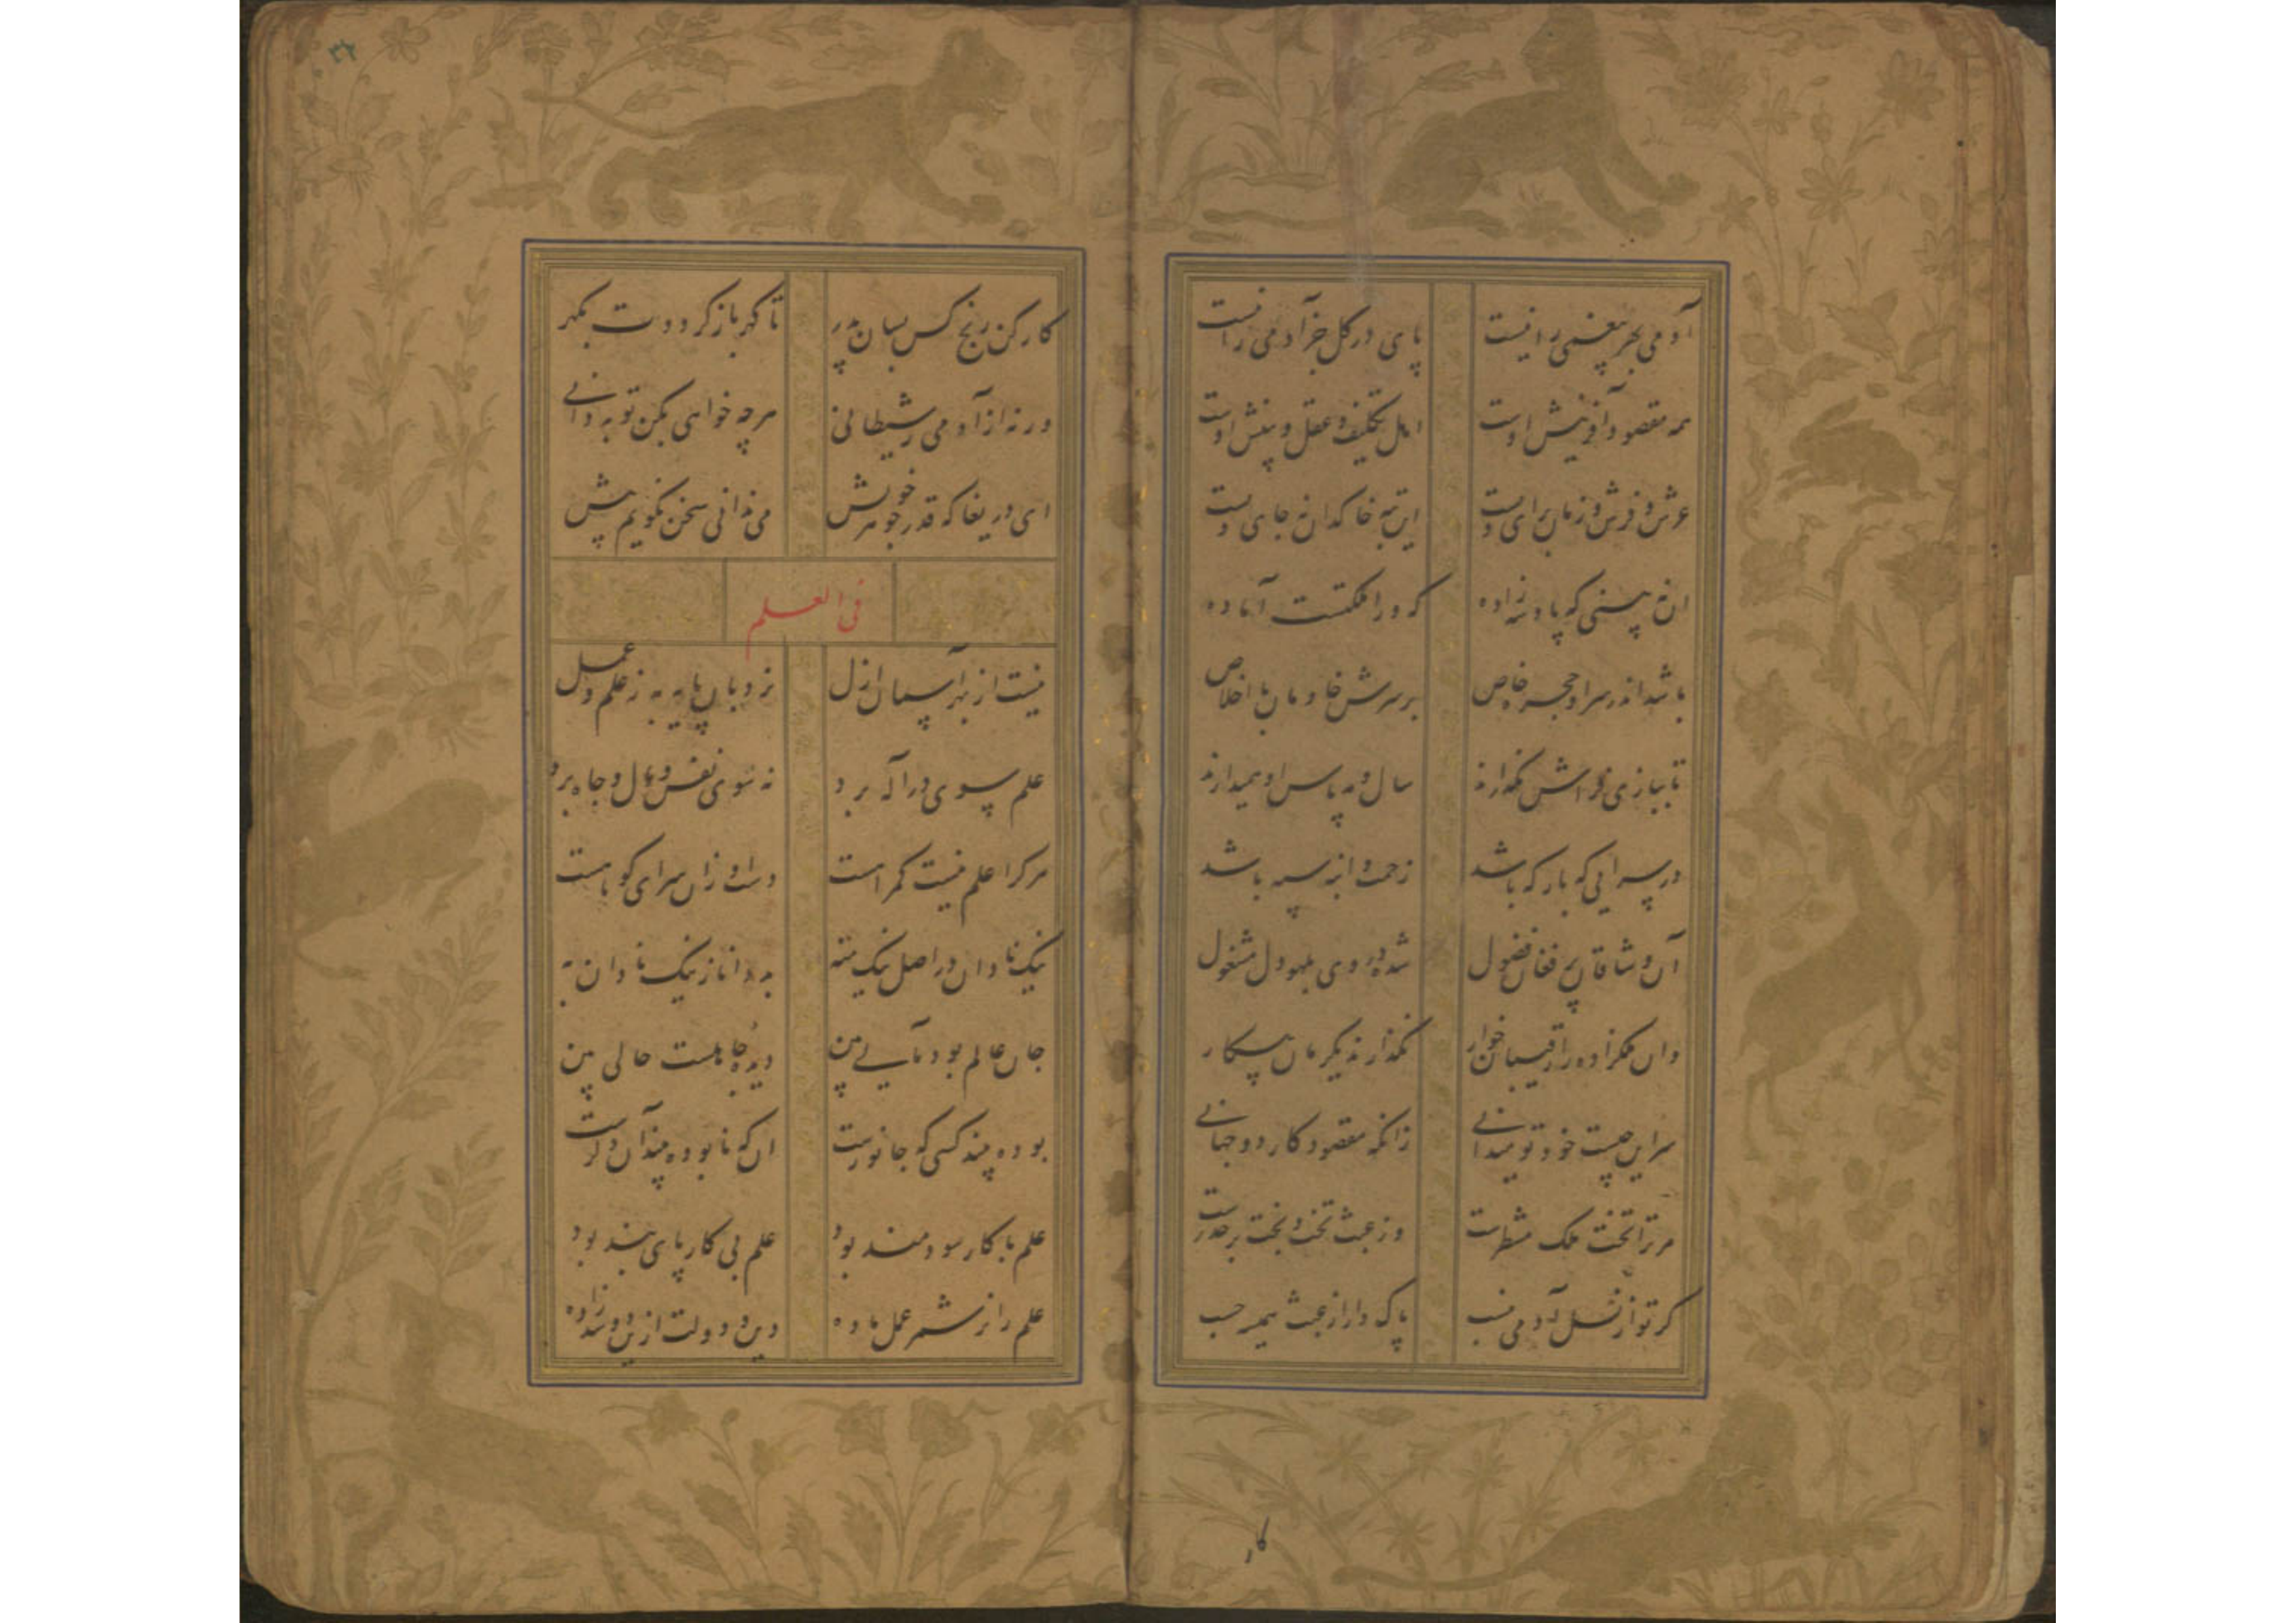 آدمی بهر بیغمی را نیست پای در کل جز آدمی را نیست
همه مقصود آفرینش اوست اهل تکلیف و عقل و بینش اوست
عرش و فرش و زمان برای ویست این تبه خاکدان نه جای ویست
ان نه بینی که پادشه زاده که ورا مکنتست آماده
باشد اندر سرا و حجره خاص بر سرش خادمان با اخلاص
تا ببازی فراش نکذارند سال و مه پاس او همیدارند
در سرایی که بارکه باشد زحمت و انبه سپه باشد
آن وشاقان پر فغان فضول شده در وی بلهو دل مشغول
وان ملکزاده را رقیبان خوار نکذارند یکزمان بیکار
سر این چیست خود تو میدانی زانکه مقصود کار دو جهانی
مر ترا تخت ملک منتظرست وز عبث تخت و بخت بر حذرست
کر تو از نسل آدمی بنسب پاک دار از عبث حسب
کار
۳۲
کار کن رنج کش بسان پدر تا کهر باز کرددت بکهر
ورنه از آدمی شیطانی هرچه خواهی بکن تو به دانی
ای دریغا که قدر جوهر خویش می ندانی سخن نکویم بیش
فی العلم
نیست از بهر آسمان ازل نردبان پایه به ز علم و عمل
علم سوی در آله برد نه سوی نفس و مال و جاه برد
هرکرا علم نیست کمراست دست او زان سرای کوتاهست
نیک نادان در اصل نیک نه به بد دانا ز نیک نادان به
جان عالم بود بین دیده جاهلست حالی بین
بوده بیند کسی که جانورست ان که نابوده بیند آن دکرست
علم با کار سودمند بود علم بی کار پای بند بود
علم نر عمل ماده دین و دولت ازین دو شد زاده